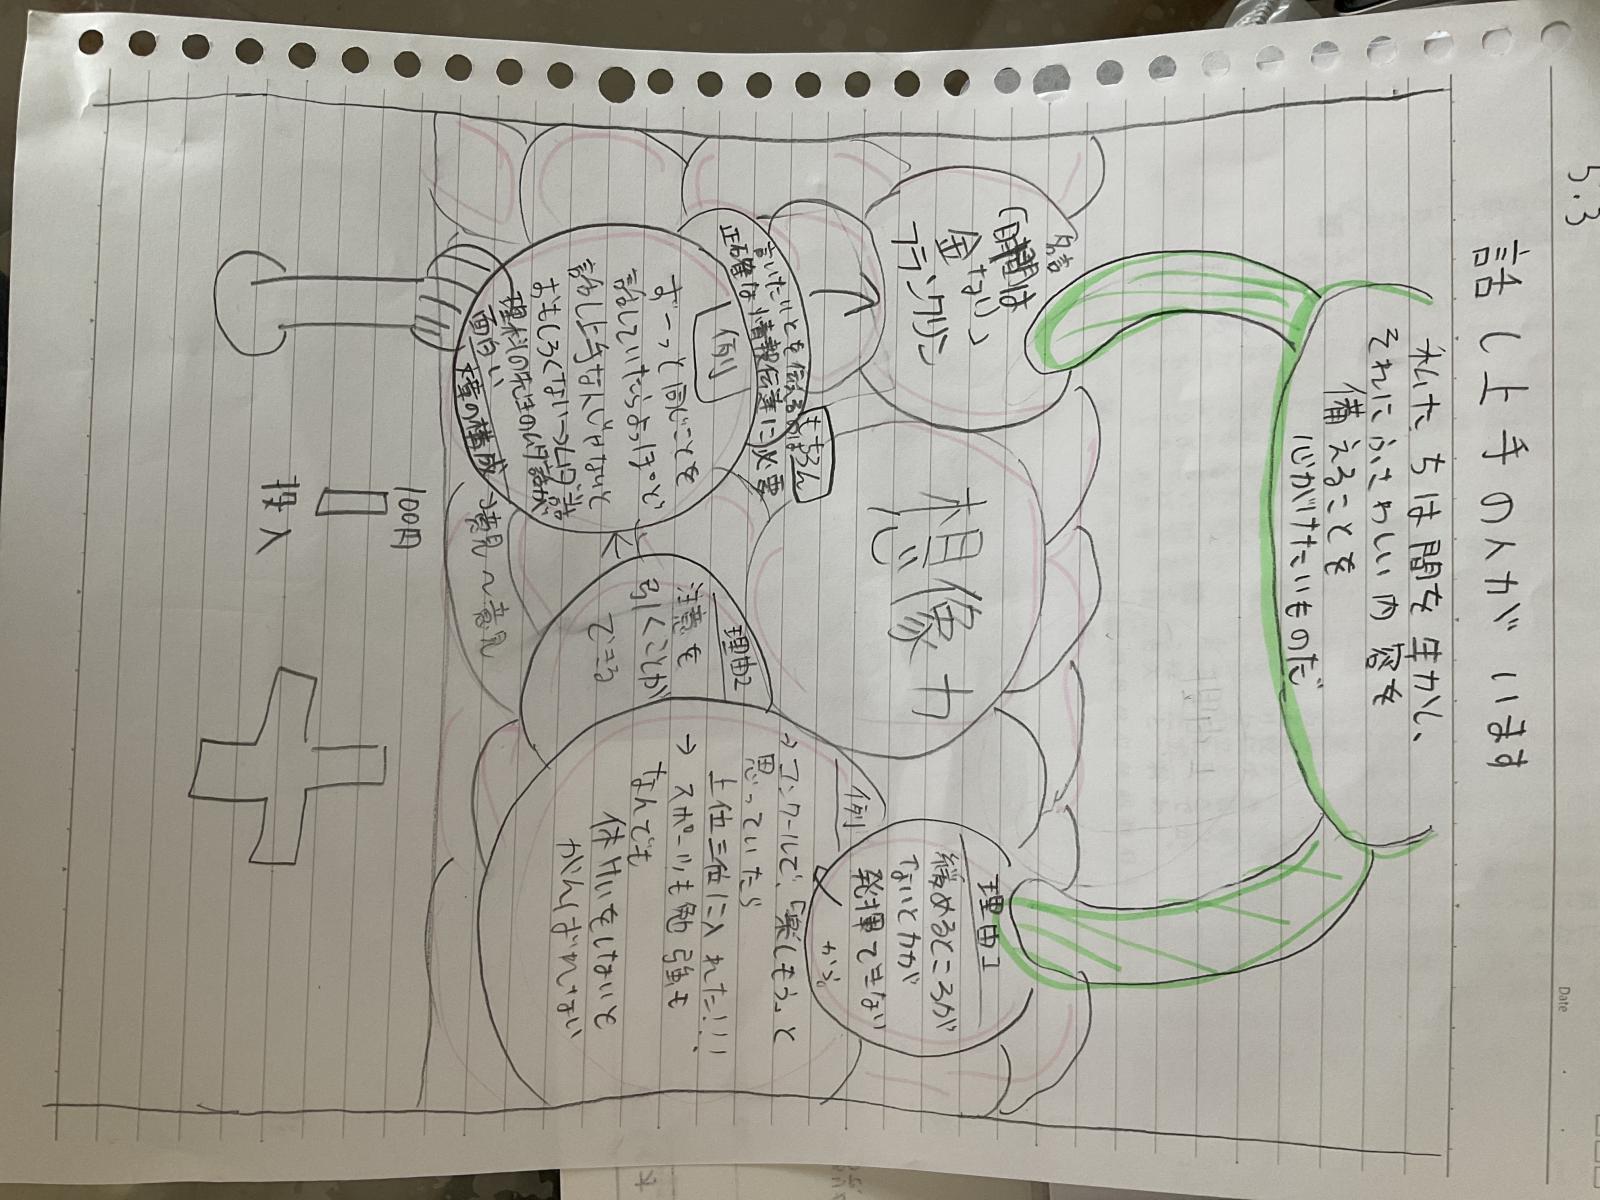 5.3
話し上手の人がいます
私たちは間を生かし、
それにふさわしい内容を
備えることを
心がけたいものだ
名言
(時間は
金なり)
フランクリン
想像力
理由1
緩めるところが
ないと力が
発揮できない
から。
例
→コンクールで、「楽しもう。」と
思っていたら
上位三位に入れた!!!
→スポーツも勉強も
なんでも
休けいをしないと
がんばれない
理由2
注意を
引くことが
できる
もちろん
言いたいことを伝えるのは
正確な情報伝達に必要
例
ずーっと同じことを
話していたらよっぽど
話し上手なんじゃないと
おもしろくない
理科の先生の
面白い
文章の構成
意見〜意見
100円
投入
Date